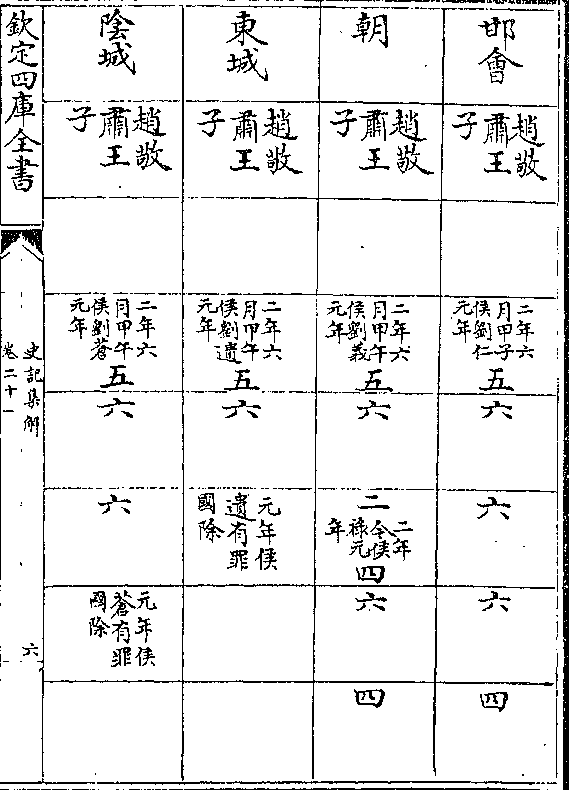 邯會
趙敬
肅王
子
二年六
月甲子
侯劉仁
元年
五
六
六
六
四
朝
趙敬
肅王
子
二年六
月甲午
侯劉義
元年
五
六
二
二年
今侯
祿元
年
四
六
四
東城
趙敬
肅王
子
二年六
月甲午
侯劉遺
元年
五
六
元年侯
遺有罪
國除
陰城
趙敬
肅王
子
二年六
月甲午
侯劉蒼
元年
五
六
六
元年侯
蒼有罪
國除
欽定四庫全書
史記集解
卷二十一
六